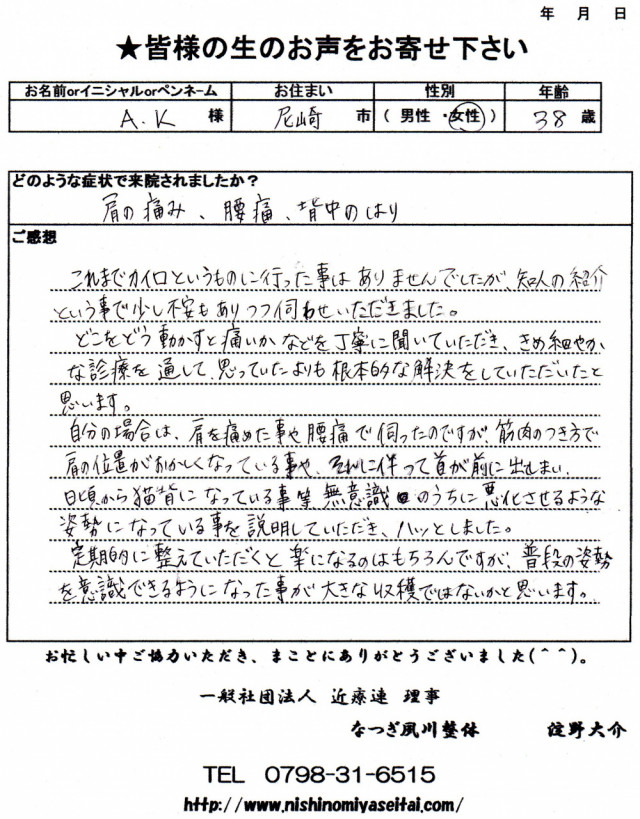 年 月 日
★皆様の生のお声をお寄せ下さい
お名前orイニシャルorペンネーム お住まい 性別 年齢
A.K 様 尼崎 市 ( 男性 ・女性 ) 38 歳
どのような症状で来院されましたか？
肩の痛み、腰痛、背中のはり
ご感想
これまでカイロというものに行った事はありませんでしたが、知人の紹介
という事で少し不安もありつつ伺わせいただきました。
どこをどう動かすと痛いかなどを丁寧に聞いていただき、きめ細やか
な診療を通して、思っていたよりも根本的な解決をしていただいたと
思います。
自分の場合は、肩を痛めた事や腰痛で伺ったのですが、筋肉のつき方で
肩の位置がおかしくなっている事や、それに伴って首が前に出てしまい、
日頃から猫背になっている事等 無意識 のうちに悪化させるような
姿勢になっている事を説明していただき、ハッとしました。
定期的に整えていただくと楽になるのはもちろんですが、普段の姿勢
を意識できるようになった事が大きな収穫ではないかと思います。
お忙しい中ご協力いただき、まことにありがとうございました(＾＾)。
一般社団法人 近療連 理事
なつぎ夙川整体 淀野大介
TEL 0798-31-6515
http://www.nishinomiyaseitai.com/